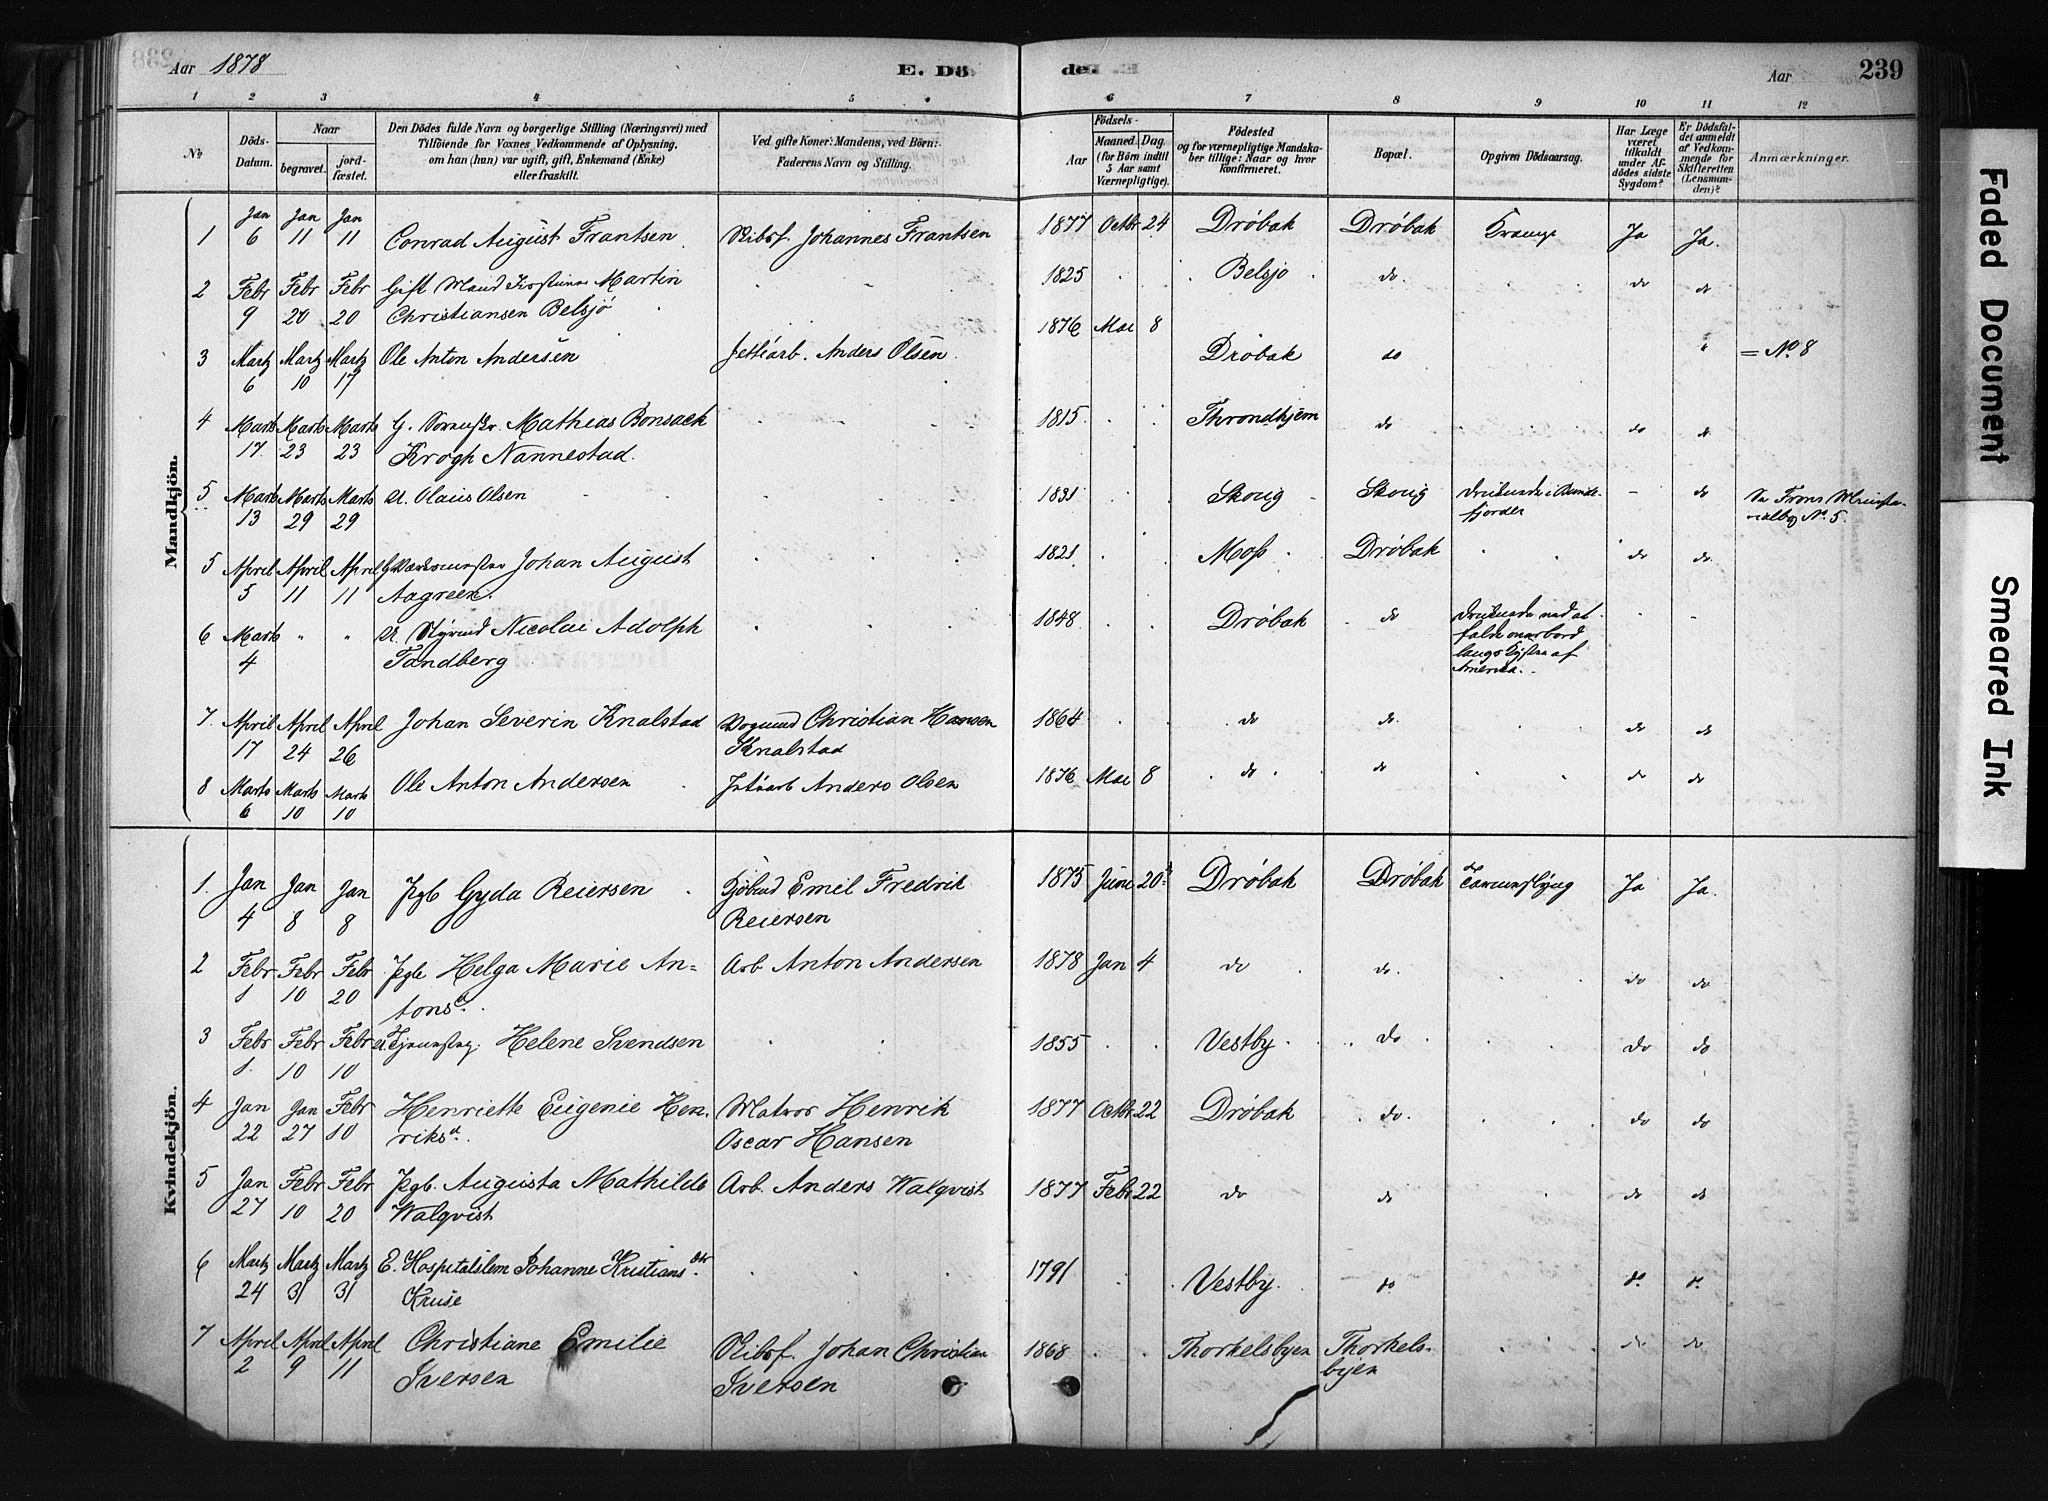 Aar 1878 E. Dö de. Aar 239
1 2 3 4 5 6 7 8 9 10 11 12
No
Döds-Datum.
Naar
begravet.
jordfæstet.
Den Dödes fulde Navn og borgerlige Stilling (Næringsvei) med
Tilföiende for Voxnes Vedkommende af Oplysning,
om han (hun) var ugift, gift, Enkemand (Enke)
eller fraskilt.
Ved gifte Koner: Mandens, ved Börn:
Faderens Navn og Stilling.
Födsels-
Aar
Maaned. Dag.
(for Börn indtil
5 Aar samt
Værnepligtige).
Födested
og for værnepligtige Mandska-
ber tillige: Naar og hvor
konfirmeret.
Bopæl.
Opgiven Dödsaarsag.
Har Læge
været
tilkaldt
under Af-
dödes sidste
Sygdom?
Er Dödsfal-
det anmeldt
af Vedkom-
mende for
Skifteretten
(Lensman-
den)?
Anmærkninger.
Mandkjön.
1 Jan 6 Jan 11 Jan 11 Conrad August Frantsen Johannes Frantsen 1877 Octbr 24 Dröbak Dröbak Krampe Ja Ja.
2 Febr 9 Febr 20 Febr 20 Gift Martin 1825 Belsjö do do do
Christiansen Belsjö
3 Martz 6 Martz 10 Martz 17 Ole Anton Andersen Anders Olsen 1876 Mai 8 Dröbak do " = No 8
4 Marts 17 Marts 23 Marts 23 G. Mathias Bonsack 1815 Throndhjem do do do
Krogh Nannestad.
5 Marts 13 Marts 29 Marts 29 U. Olaus Olsen 1831 Skoug Skoug Druknede i Bunde- - do
fjorden No 5.
5 April 5 April 11 April 11 Johan August 1821 Moss Dröbak do do
Aagreen.
6 Marts 4 " " U. Styrmd Nicolai Adolph 1848 Dröbak do Druknede ved at - -
Tandberg falde overbord
langs Kysten af
Amerika.
7 April 17 April 24 April 26 Johan Severin Knalstad Christian Hansen 1864 do do do do
Knalstad
8 Marts 6 Marts 10 Marts 10 Ole Anton Andersen Anders Olsen 1876 Mai 8 do do do do
Kvindekjön.
1. Jan 4 Jan 8 Jan 8 Pgb Gyda Reiersen Emil Fredrik 1875 Juni 20 Dröbak Dröbak Ja Ja.
Reiersen
2 Febr 1 Febr 10 Febr 20 Pgb Helga Marie An- Arb Anton Andersen 1878 Jan 4 do do. do do
tonsd.
3 Febr 1. Febr 10 Febr 10 U. Helene Svendsen 1855 Vestby do do do
4 Jan 22 Jan 27 Febr 10 Henriette Eugenie Hen- Matros Henrik 1877 Octbr 22 Dröbak do. do do
riksd. Oscar Hansen
5 Jan 27 Febr 10 Febr 20 Pgb. Augusta Mathilde Arb. Anders Walqvist 1877 Febr 22 do do do do
Walqvist
6 Martz 24 Martz 31 Martz 31 E. Hospitalslem Johanne Kristiansdtr 1791 Vestby. do do do
Kruse
7 April 2 April 9 April 11 Christiane Emilie Johan Christian 1868 Thorkelsbyen Thorkels- do do
Iversen Iversen byen
Faded Document
Smeared Ink